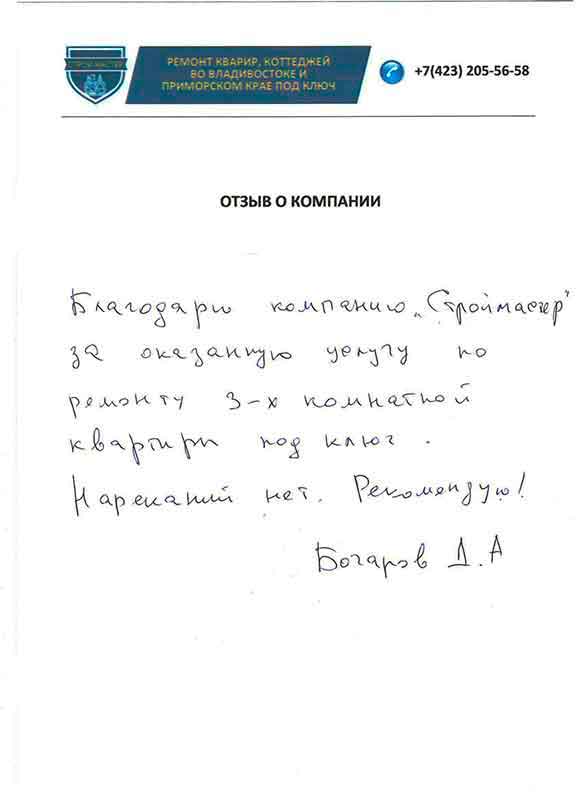 СТРОЙ МАСТЕР
РЕМОНТ КВАРИР, КОТТЕДЖЕЙ
ВО ВЛАДИВОСТОКЕ И
ПРИМОРСКОМ КРАЕ ПОД КЛЮЧ
+7(423) 205-56-58
ОТЗЫВ О КОМПАНИИ
Благодарю компанию „Строймастер"
за оказанную услугу по
ремонту 3-х комнатной
квартиры под ключ.
Нареканий нет. Рекомендую!
Бочаров Д.А